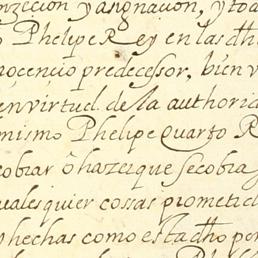 nzecion y asignacion, y toa
o Phelipe Rey en las dhi
nocencio predecessor, bien v
en virtud de la authorid
mismo Phelipe quarto R
cobrar ô hazer que se cobra
uales quier cossas prometid
y hechas como esta dho por